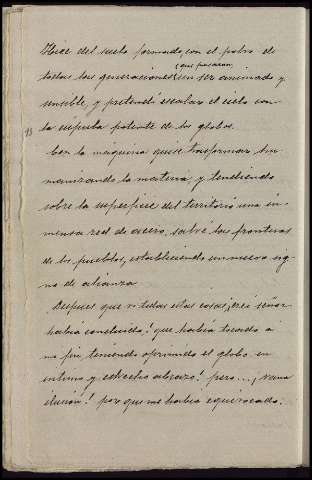 Hice del suelo formado, con el polvo de
que pasaron
todas las generaciones, un ser animado y
sensible, y pretendí escalar el cielo con
la cúpula potente de los globos.
13
Con la máquina quise trasformar, hu
manizando la materia, y tendiendo
sobre la superficie del territorio una in
mensa red de acero, salvé las fronteras
de los pueblos, estableciendo un nuevo sig
no de alianza.
Despues que ví todas estas cosas, ¡creí señor
había concluido! que había tocado a
mi fin, teniendo oprimido el globo en
íntimo y estrecho abrazo! pero..., ¡vana
ilusión! por que me había equivocado.